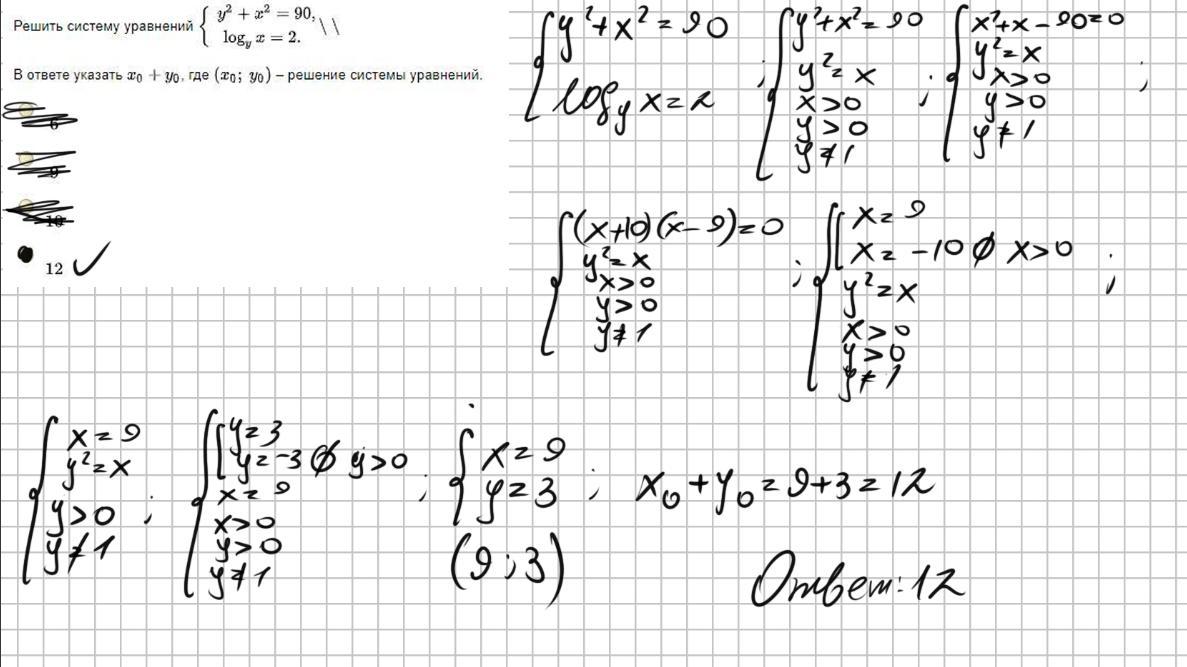 Решить систему уравнений { y² + x² = 90, \ \
log_y x = 2.
В ответе указать x₀ + y₀, где (x₀; y₀) – решение системы уравнений.
6
9
10
12 ✓
{ y²+x²=90
log_y x=2 ;
{ y²+x²=90
y²=x
x>0
y>0
y≠1 ;
{ x²+x-90=0
y²=x
x>0
y>0
y≠1 ;
{ (x+10)(x-9)=0
y²=x
x>0
y>0
y≠1 ;
{ [ x=9
x=-10 ∅ x>0
y²=x
x>0
y>0
y≠1 ;
{ x=9
y²=x
y>0
y≠1 ;
{ [ y=3
y=-3 ∅ y>0
x=9
x>0
y>0
y≠1 ;
{ x=9
y=3 ;
(9;3)
x₀+y₀=9+3=12
Ответ: 12